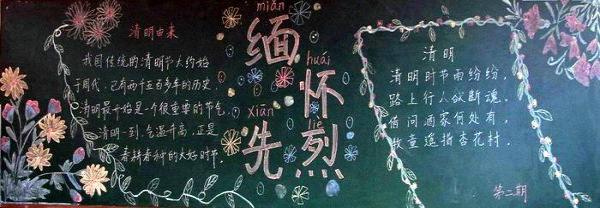 清明由来
我国传统的清明节大约始
于周代,已有两千五百多年的历史,
清明最开始是一个很重要的节气,
清明一到,气温升高,正是
春耕春种的大好时节.
miǎn
缅
huái
怀
xiān
先
liè
烈
清明
清明时节雨纷纷,
路上行人欲断魂,
借问酒家何处有,
牧童遥指杏花村.
第二期